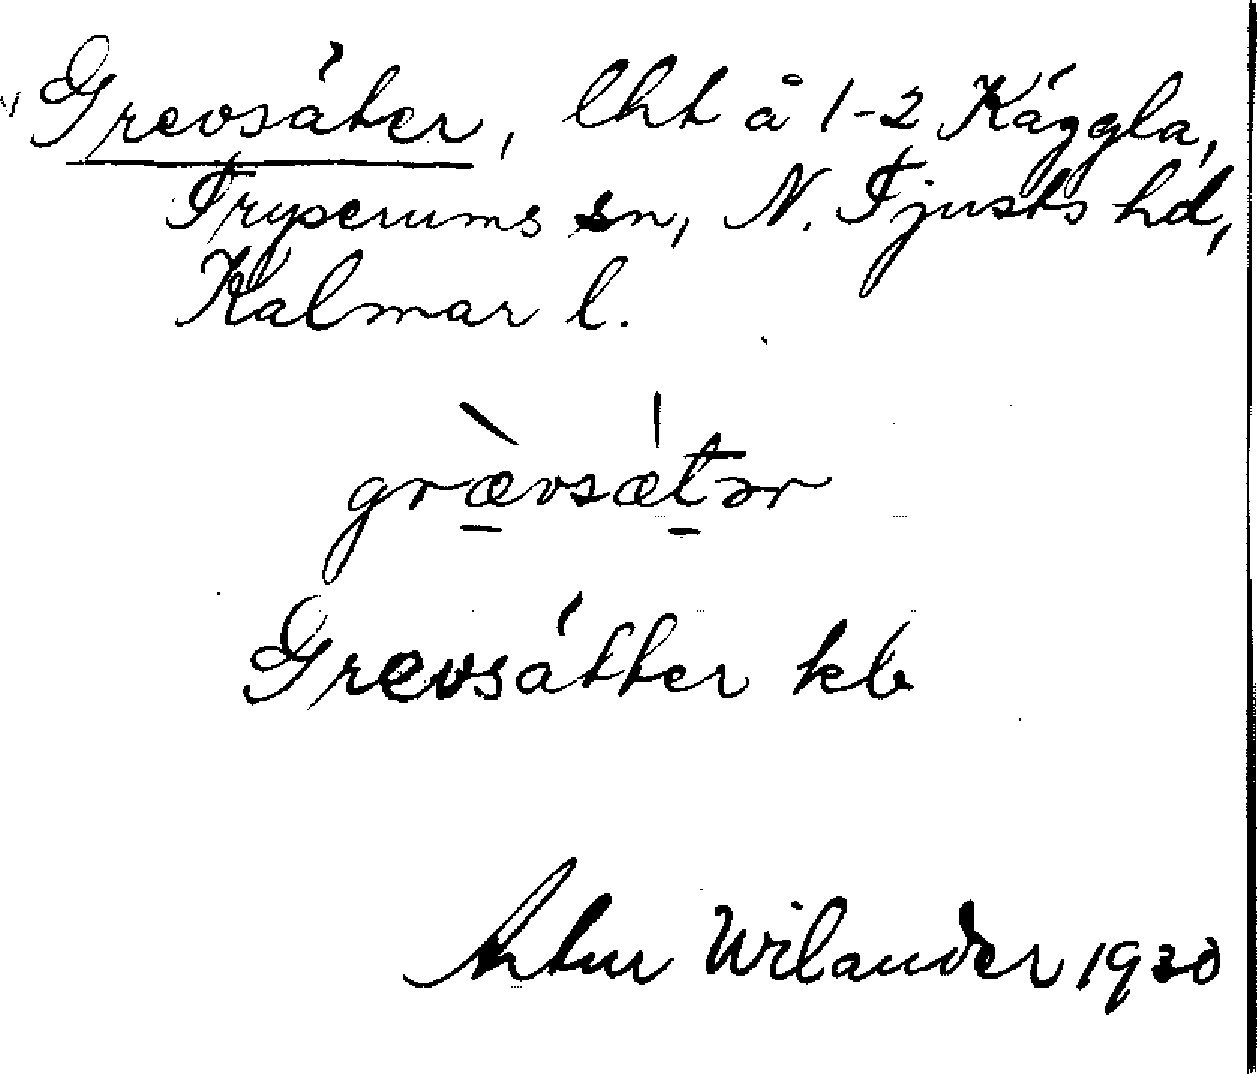 Grevsäter, lht å 1-2 Käggla,
Tryserums sn, N. Tjusts hd,
Kalmar l.
græ̱̀vsæṯər
Grevsätter kb
Artur Wilander 1930